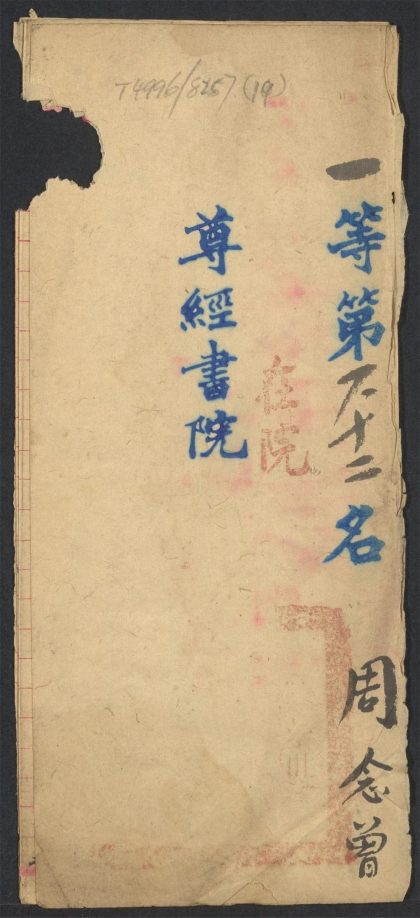 T4996/8257.(19)
一等第十二名
周念曾
在院
尊經書院